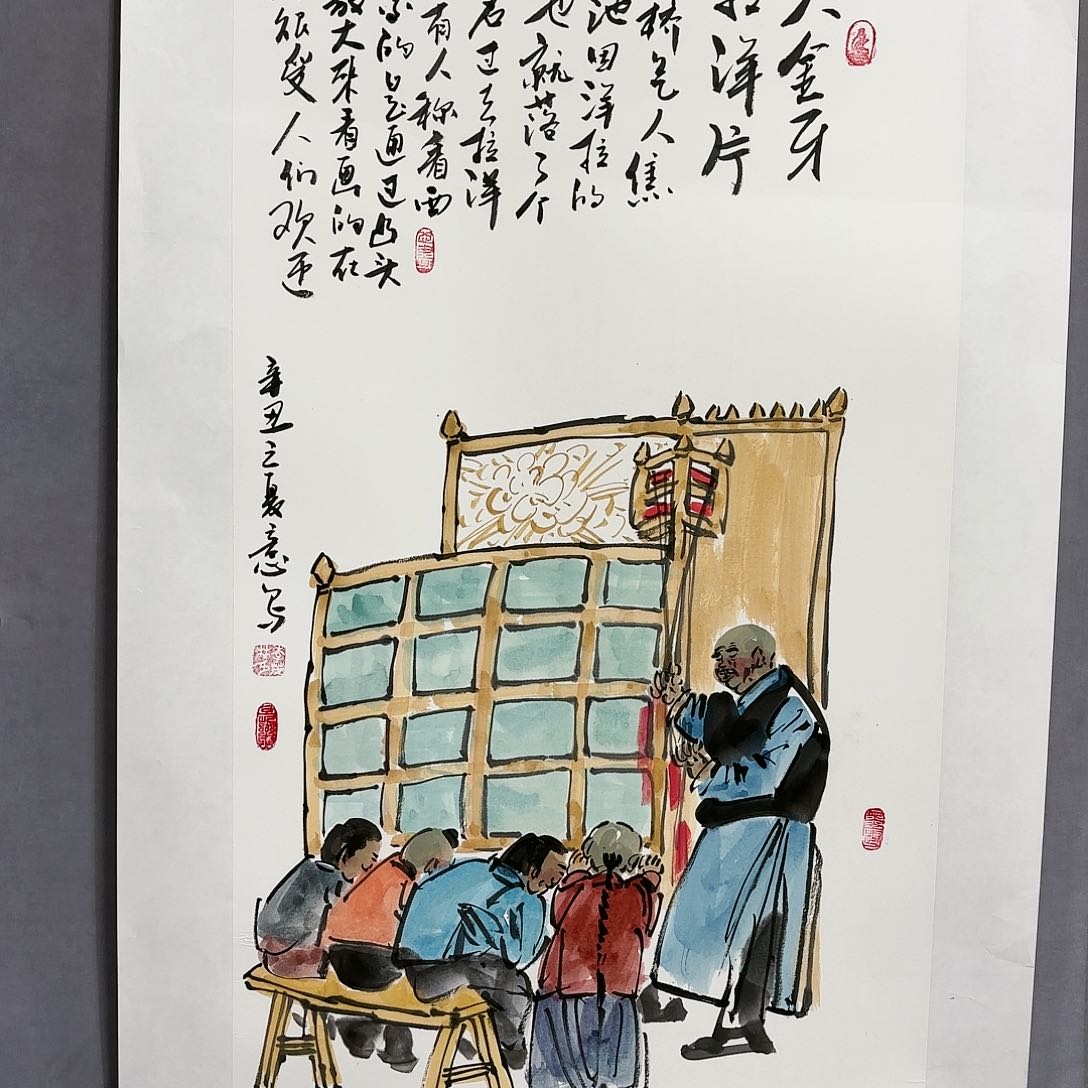 大金牙
拉洋片
桥艺人焦
池因洋拉的
也就落了个
名过去拉洋
有人称看西
景的是通过凸头
放大来看画的在
很受人们欢迎
辛丑之夏意写